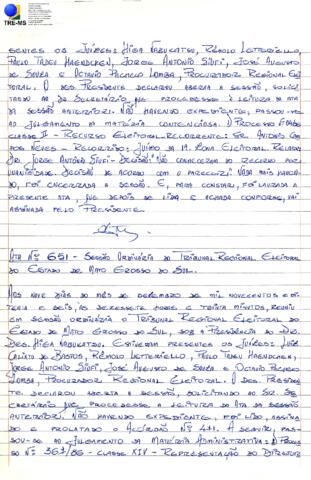 TRE-MS
SENTES OS JUÍZES: HIGA NABUKATSU, RÊMOLO LETTERIELLO,
PAULO TADEU HAENDCHEN, JORGE ANTONIO SIUFI, JOSÉ AUGUSTO
DE SOUZA E OCTAVIO PACHECO LOMBA, PROCURADOR REGIONAL ELEI-
TORAL. O DES. PRESIDENTE DECLAROU ABERTA A SESSÃO, SOLICI-
TANDO AO SR. SECRETÁRIO QUE PROCEDESSE À LEITURA DA ATA
DA SESSÃO ANTERIOR. NÃO HAVENDO EXPEDIENTE, PASSOU-SE
AO JULGAMENTO DA MATÉRIA CONTENCIOSA: 1) PROCESSO
CLASSE II - RECURSO ELEITORAL - RECORRENTE: SR. ANTONIO
NEVES - RECORRIDO: JUÍZO DA ZONA ELEITORAL. RELATOR
DR. JORGE ANTÔNIO SIUFI - DECISÃO: NÃO CONHECERAM DO RECURSO POR
UNANIMIDADE. DECISÃO DE ACORDO COM O PARECER. NADA MAIS HAVEN-
DO, FOI ENCERRADA A SESSÃO. E, PARA CONSTAR, FOI LAVRADA A
PRESENTE ATA, QUE DEPOIS DE LIDA E ACHADA CONFORME, VAI
ASSINADA PELO PRESIDENTE.
ATA Nº 651 - SESSÃO ORDINÁRIA DO TRIBUNAL REGIONAL ELEITORAL
DO ESTADO DE MATO GROSSO DO SUL.
AOS NOVE DIAS DO MÊS DE DEZEMBRO DE MIL NOVECENTOS E OI-
TENTA E SEIS, ÀS DEZESSETE HORAS E TRINTA MINUTOS, REUNIU
EM SESSÃO ORDINÁRIA O TRIBUNAL REGIONAL ELEITORAL DO
ESTADO DE MATO GROSSO DO SUL, SOB A PRESIDÊNCIA DO
DES. HIGA NABUKATSU. ESTIVERAM PRESENTES OS JUÍZES: LUIZ
CALIXTO DE BASTOS, RÊMOLO LETTERIELLO, PAULO TADEU HAENDCHEN,
JORGE ANTONIO SIUFI, JOSÉ AUGUSTO DE SOUZA E OCTAVIO PACHECO
LOMBA, PROCURADOR REGIONAL ELEITORAL. O DES. PRESIDEN-
TE DECLAROU ABERTA A SESSÃO, SOLICITANDO AO SR. SE-
CRETÁRIO QUE PROCEDESSE À LEITURA DA ATA DA SESSÃO
ANTERIOR. NÃO HAVENDO EXPEDIENTE, FOI LIDO, ASSINA-
DO E PROLATADO O ACÓRDÃO Nº 411. A SEGUIR, PAS-
SOU-SE AO JULGAMENTO DA MATÉRIA ADMINISTRATIVA: 1) PROCES-
SO Nº 367/86 - CLASSE XIV - REPRESENTAÇÃO DO DIRETOR